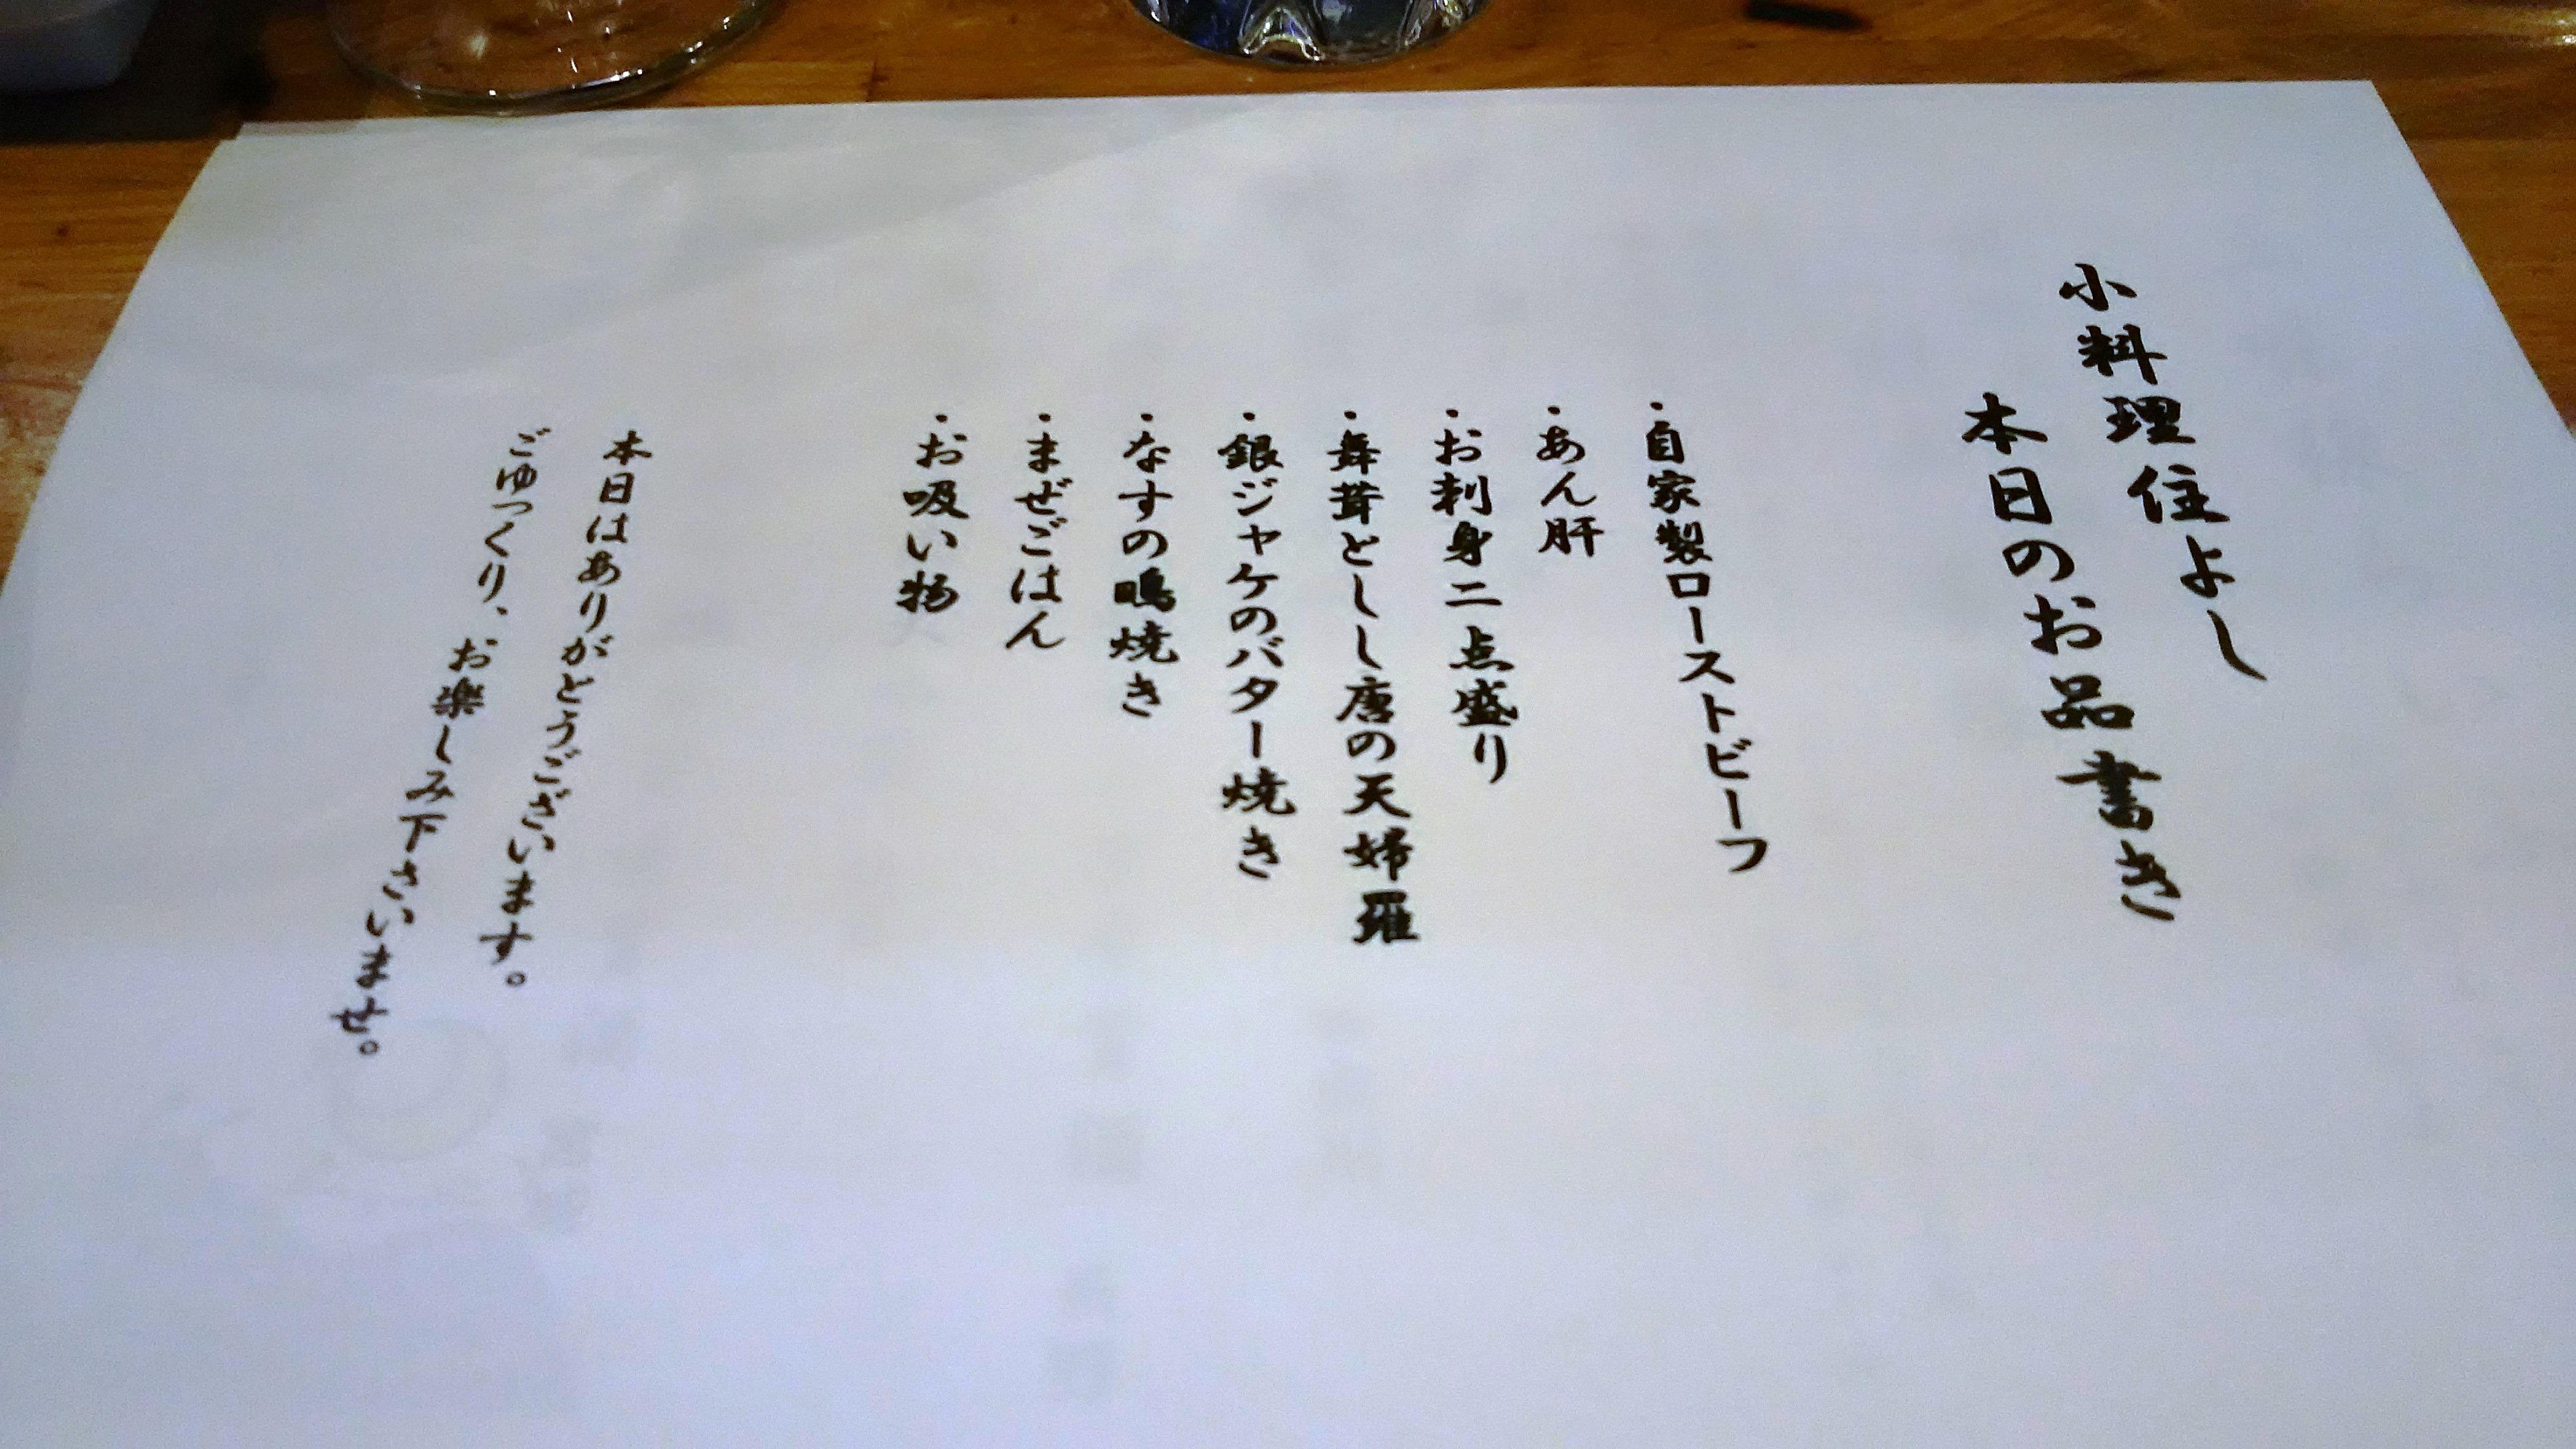 小料理住よし
本日のお品書き
・自家製ローストビーフ
・あん肝
・お刺身二点盛り
・舞茸としし唐の天婦羅
・銀ジャケのバター焼き
・なすの鴫焼き
・まぜごはん
・お吸い物
本日はありがとうございます。
ごゆっくり、お楽しみ下さいませ。